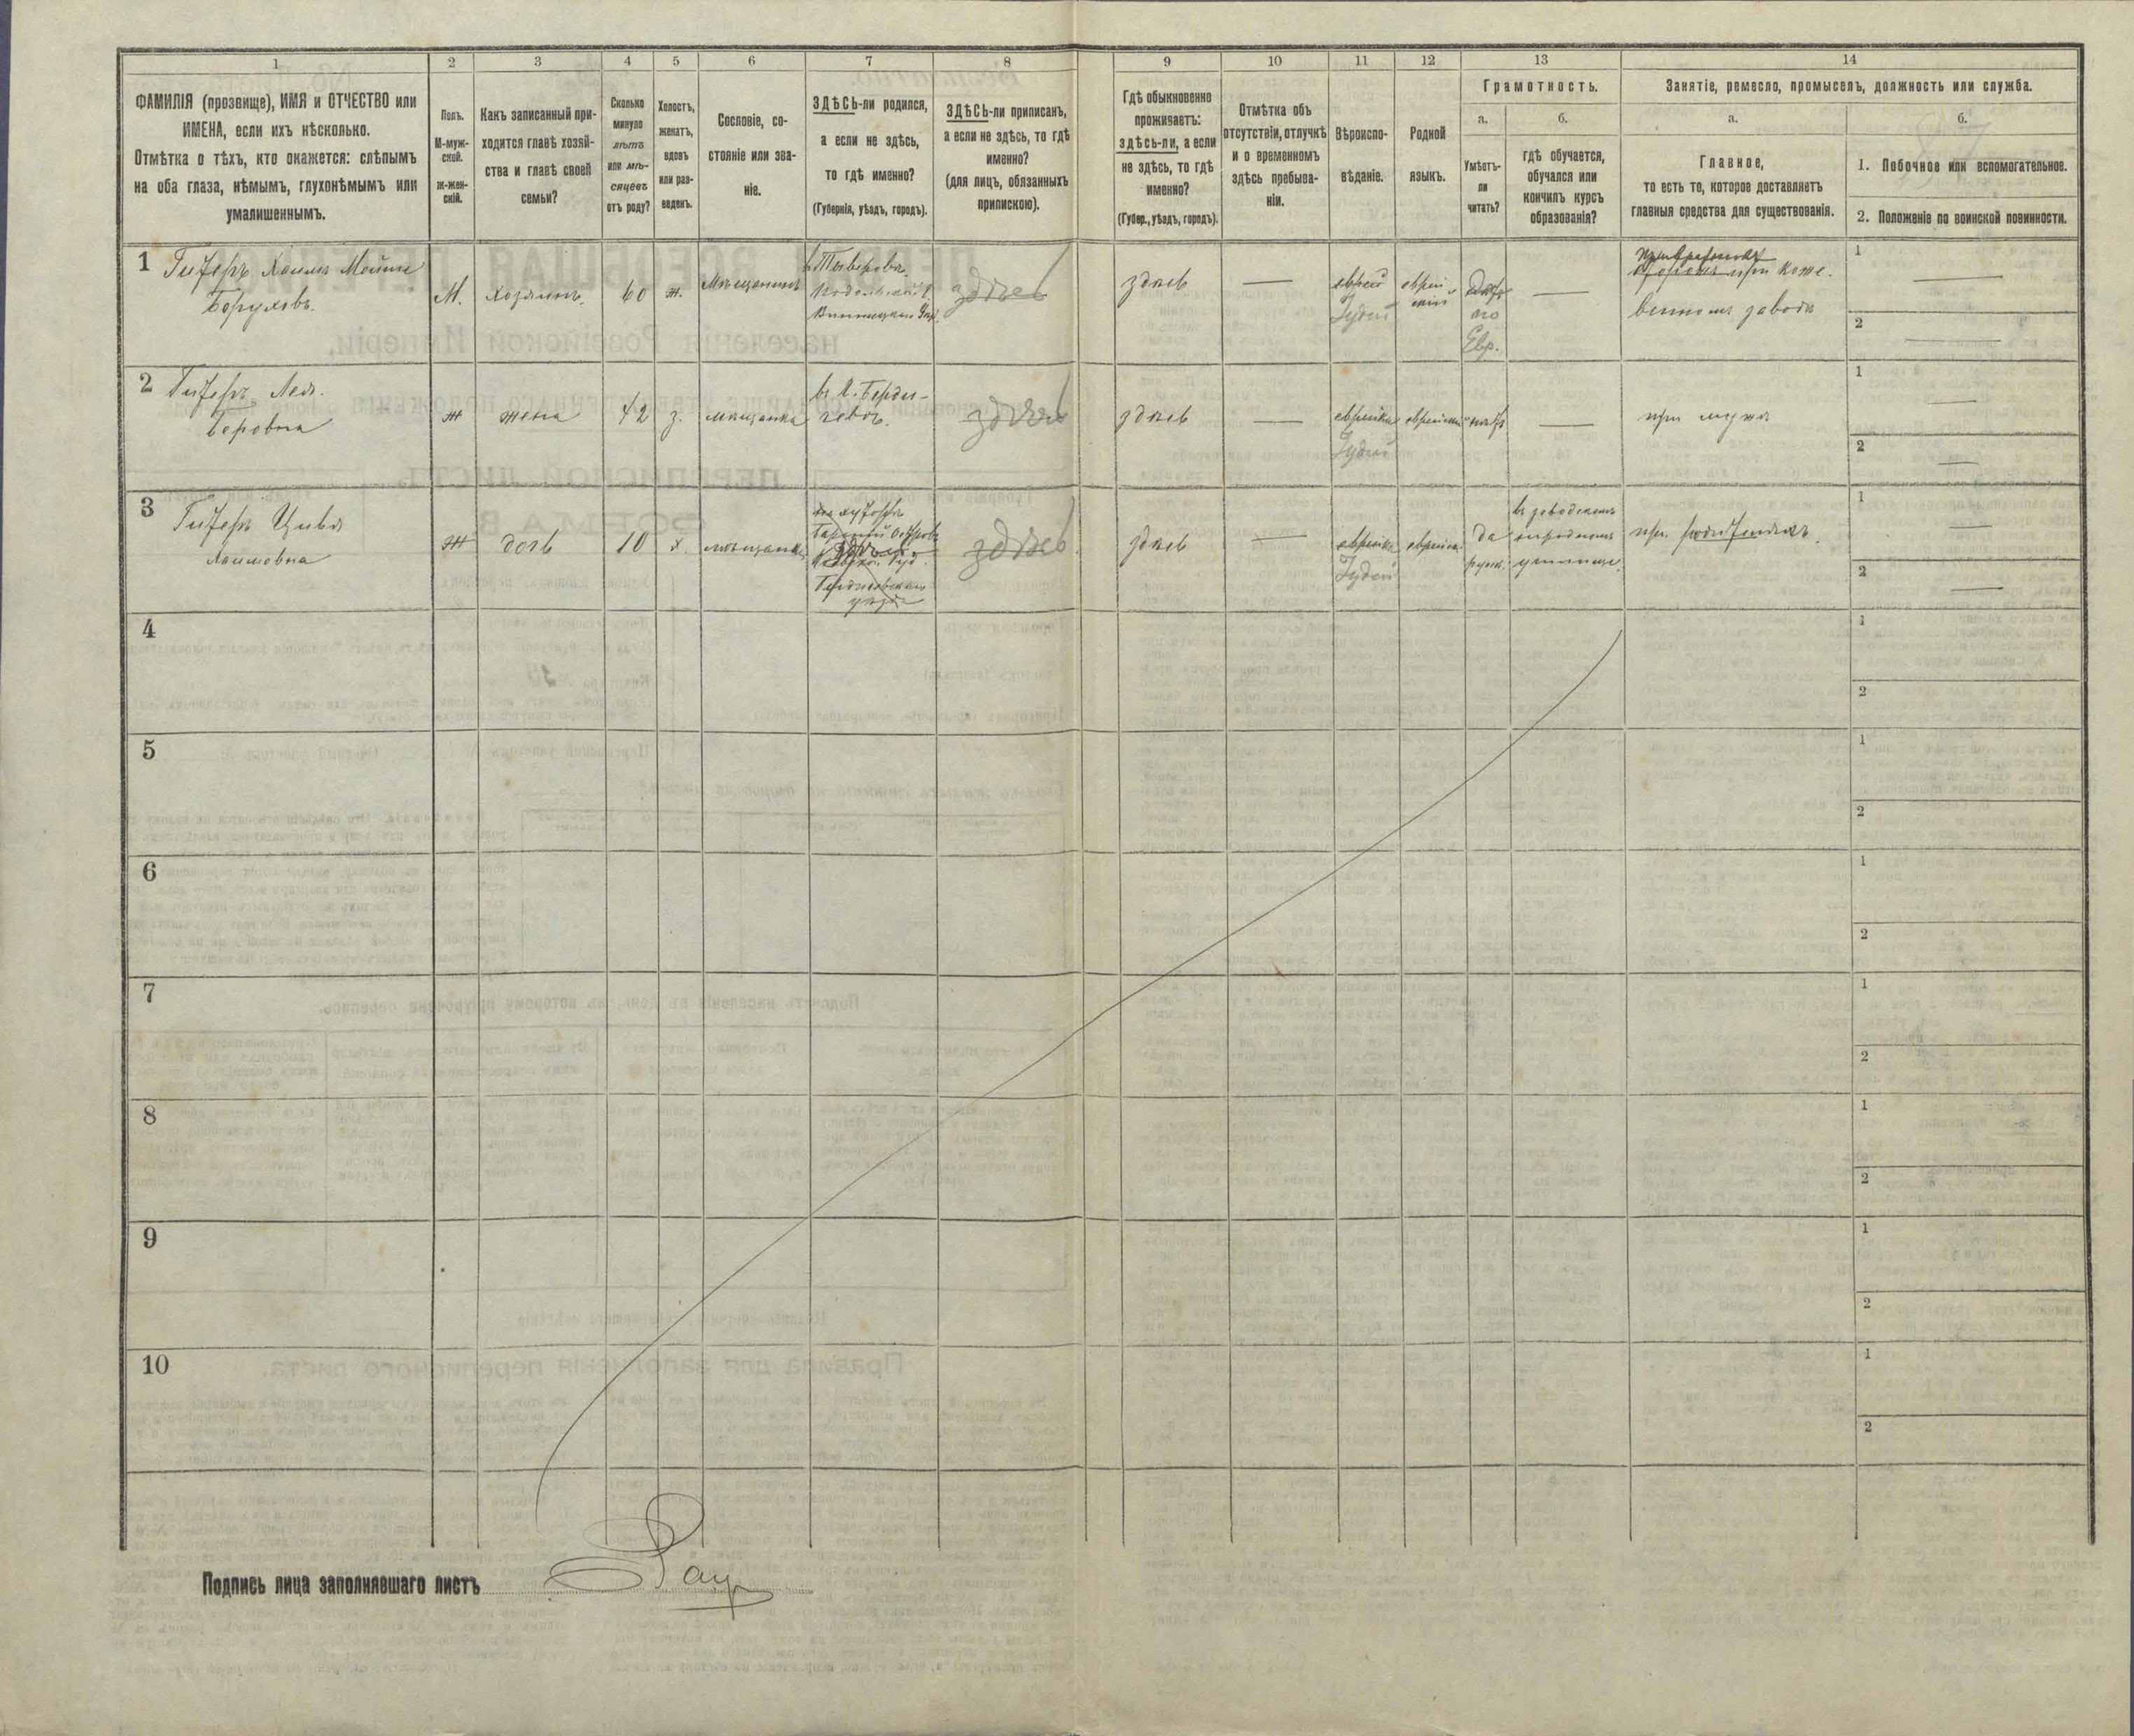 1
2
3
4
5
6
7
8
9
10
11
12
13
14
ФАМИЛІЯ (прозвище), ИМЯ и ОТЧЕСТВО или
ИМЕНА, если ихъ нѣсколько.
Отмѣтка о тѣхъ, кто окажется: слѣпымъ
на оба глаза, нѣмымъ, глухонѣмымъ или
умалишеннымъ.
Полъ.
М-муж-
ской.
Ж-жен-
скій.
Какъ записанный при-
ходится главѣ хозяй-
ства и главѣ своей
семьи?
Сколько
минуло
лѣтъ
или мѣ-
сяцевъ
отъ роду?
Холостъ,
женатъ,
вдовъ
или раз-
веденъ.
Сословіе, со-
стояніе или зва-
ніе.
ЗДѢСЬ-ли родился,
а если не здѣсь,
то гдѣ именно?
(Губернія, уѣздъ, городъ).
ЗДѢСЬ-ли приписанъ,
а если не здѣсь, то гдѣ
именно?
(для лицъ, обязанныхъ
припискою).
Гдѣ обыкновенно
проживаетъ:
здѣсь-ли, а если
не здѣсь, то гдѣ
именно?
(Губер., уѣздъ, городъ).
Отмѣтка объ
отсутствіи, отлучкѣ
и о временномъ
здѣсь пребыва-
ніи.
Вѣроиспо-
вѣданіе.
Родной
языкъ.
Грамотность.
а.
Умѣетъ-
ли
читать?
б.
гдѣ обучается,
обучался или
кончилъ курсъ
образованія?
Занятіе, ремесло, промыселъ, должность или служба.
а.
Главное,
то есть то, которое доставляетъ
главныя средства для существованія.
б.
1. Побочное или вспомогательное.
2. Положеніе по воинской повинности.
1
Хаимъ
Боруховъ.
М.
хозяинъ.
60
ж.
Мѣщанинъ
Подольской
здѣсь
здѣсь
—
еврей
Іудей
Евр.
—
при коже-
венномъ заводѣ
1
—
2
—
2
Лея
Беровна
ж
жена
42
з.
мѣщанка
въ г. Берди-
чевѣ.
здѣсь
здѣсь
—
еврейка
Іудей
—
при мужѣ
1
—
2
—
3
Цивя
Хаимовна
ж
дочь
10
х
мѣщанка
здѣсь
здѣсь
—
еврейка
Іудей
да
училище
при родителяхъ.
1
—
2
—
4
1
2
5
1
2
6
1
2
7
1
2
8
1
2
9
1
2
10
1
2
Подпись лица заполнявшаго листъ